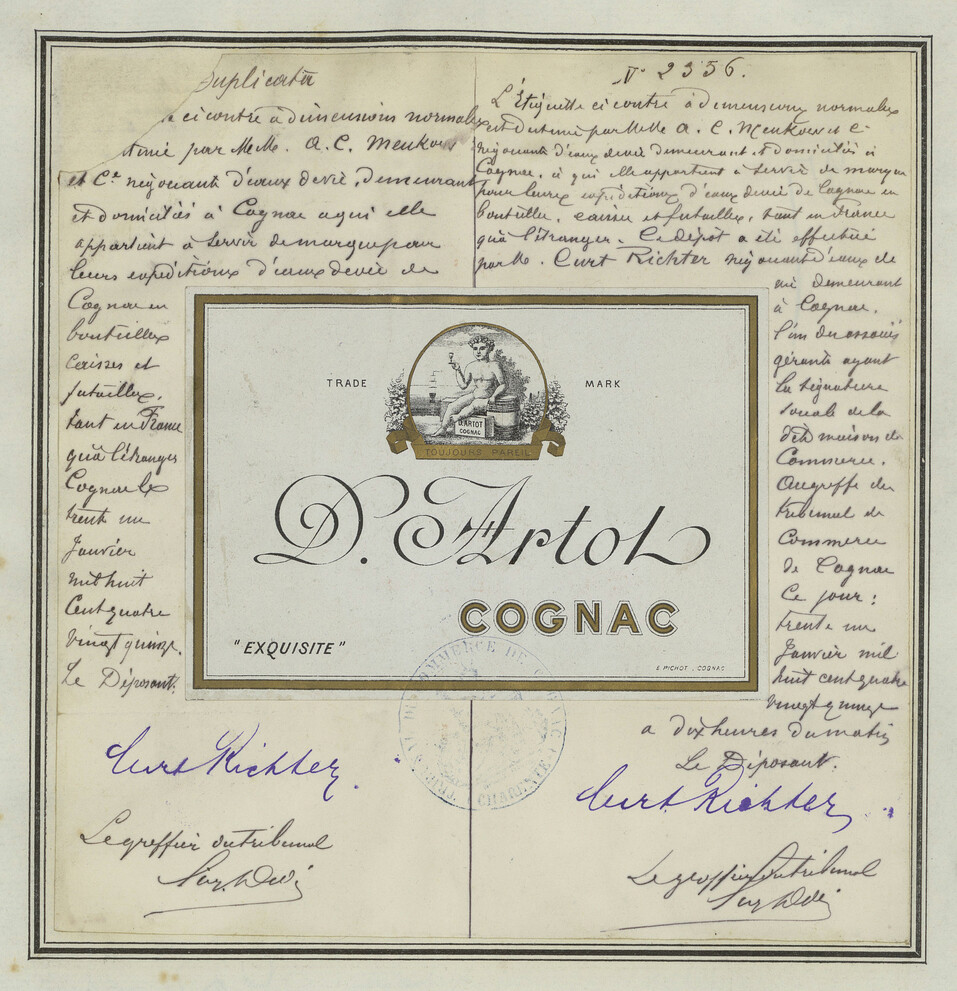 Duplicata
ci contre a dimensions normales
par MrMr. A. C. Meukow
et Cie négociants d'eaux de vie, demeurant
et domiciliés à Cognac a qui elle
appartient à servir de marque pour
leurs expéditions d'eaux de vie de
Cognac en
bouteilles
caisses et
futailles,
tant en France
qu'à l'étranger
Cognac le
trente un
Janvier
mil huit
Cent quatre
vingt quinze.
Le Déposant.
Curt Richter.
Le greffier du tribunal
N° 2356.
L'Étiquette ci contre à dimensions normales
est destinée par MrMr A. C. Meukow et Cie
négociants d'eaux de vie demeurant et domiciliés à
Cognac, à qui elle appartient à servir de marque
pour leurs expéditions d'eaux de vie de Cognac en
bouteilles, caisses et futailles, tant en France
qu'à l'étranger. Ce dépôt a été effectué
par M. Curt Richter négociant d'eaux de
vie demeurant
à Cognac.
l'un des associés
gérants ayant
la signature
sociale de la
dite maison de
Commerce.
Au greffe du
tribunal de
Commerce
de Cognac
Ce jour:
trente un
Janvier mil
huit cent quatre
vingt quinze
a dix heures du matin
Le Déposant.
Curt Richter
Le greffier du tribunal
TRADE MARK
D. ARTOT
COGNAC
TOUJOURS PAREIL
D. Artot
COGNAC
"EXQUISITE"
E. PICHOT . COGNAC
COMMERCE DE COGNAC
CHARENTE